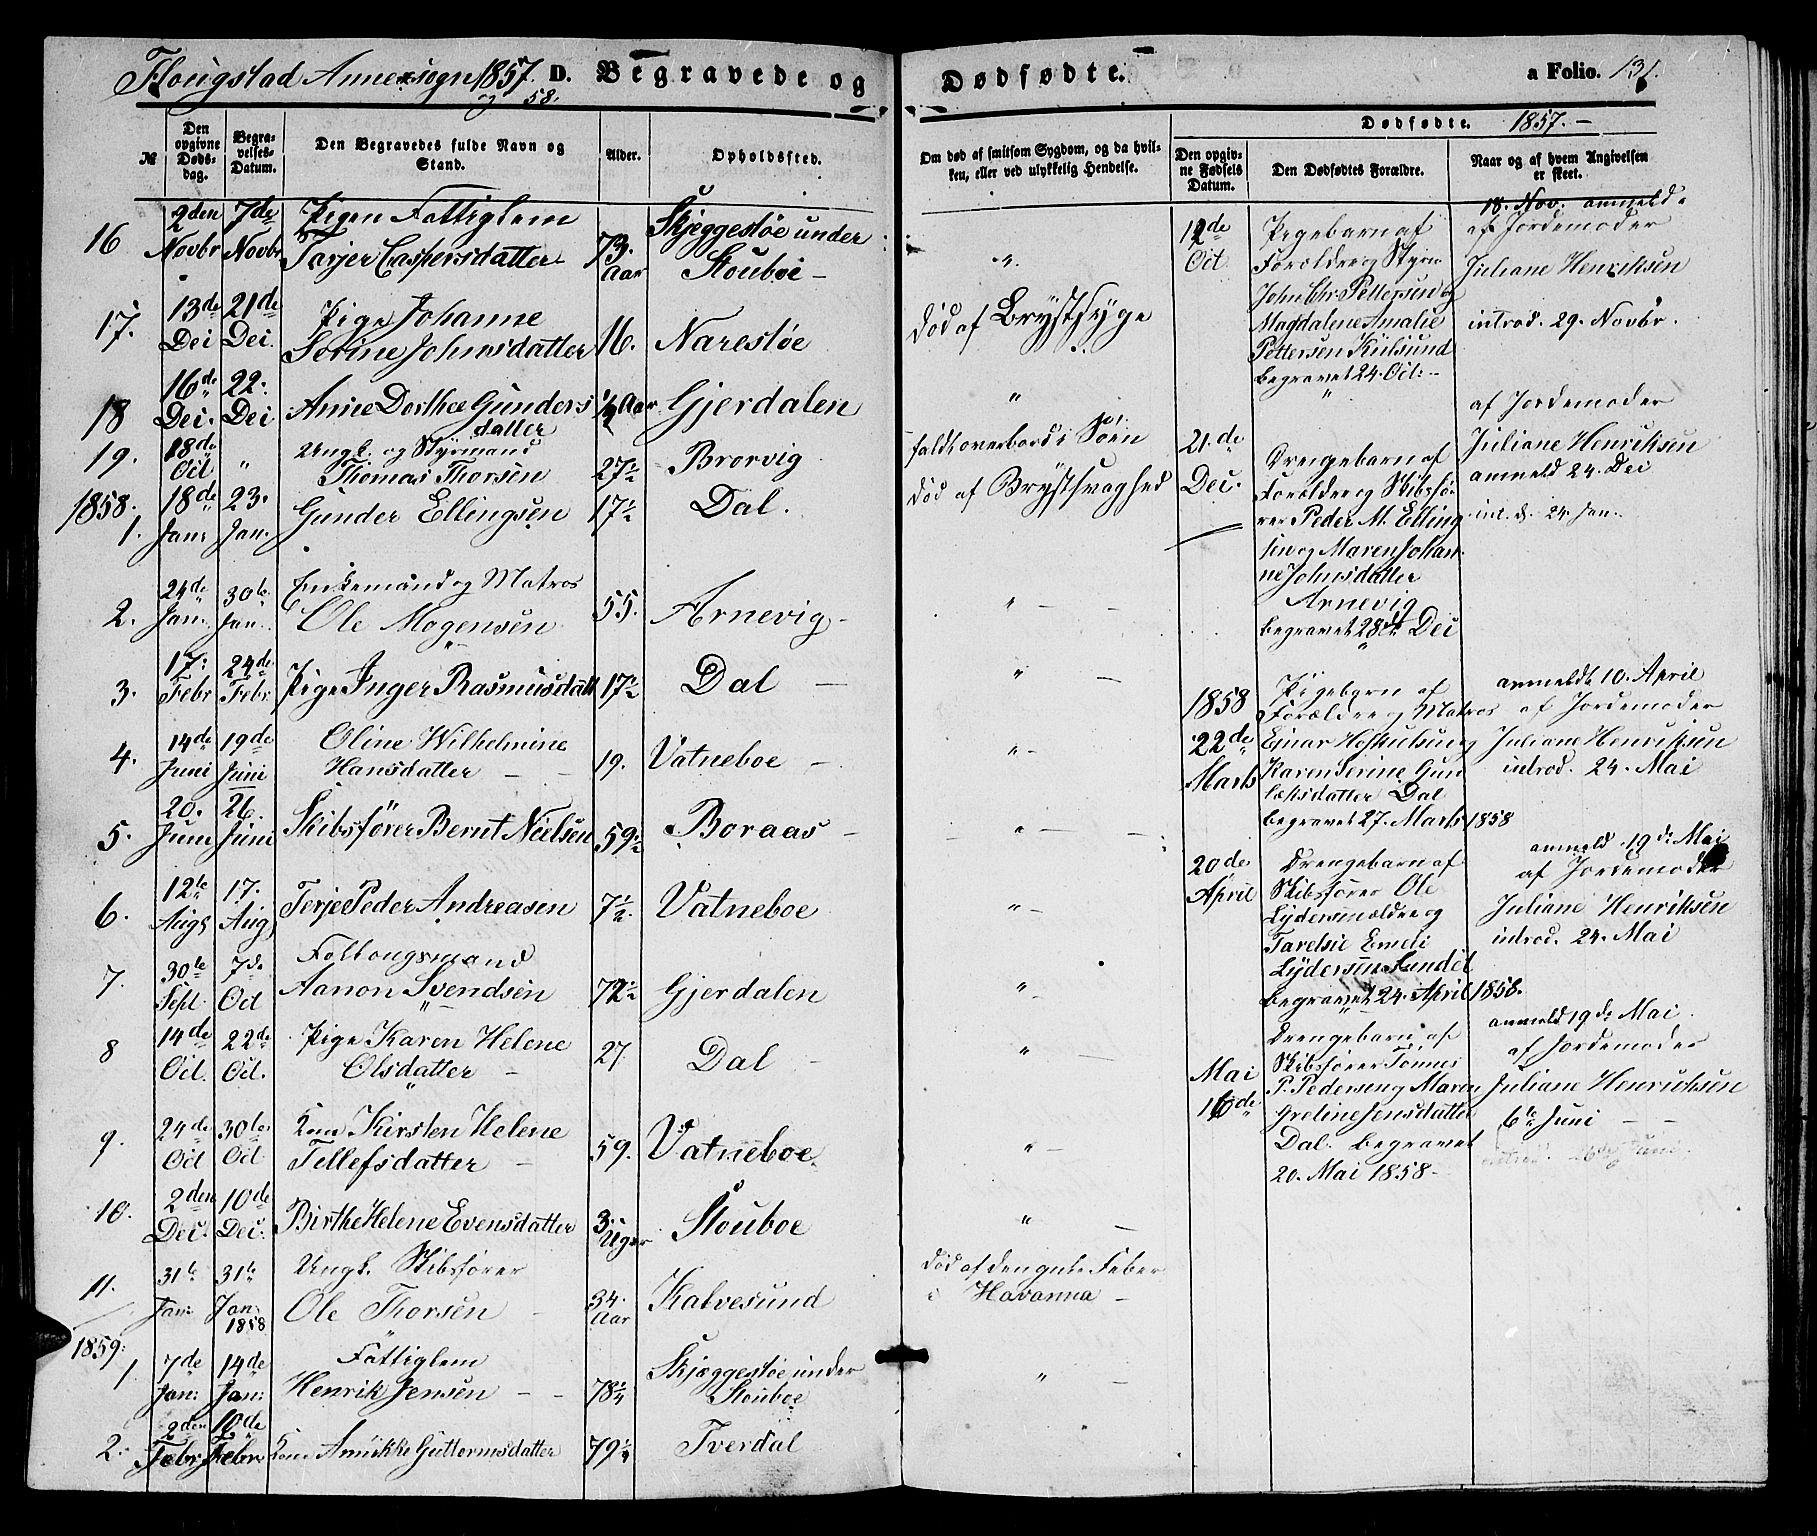 Flougstad Annexsogn 1857. D. Begravede og
og 58.
№
Den opgivne Døds-dag.
Begra-velses-Datum.
Den Begravedes fulde Navn og Stand.
Alder.
Opholdssted.
16 2den Novbr 7de Novbr Pigen Fattiglem
Tarjer Caspersdatter 73. Aar Skjeggestøe under Stouboe
17. 13de Dec 21de Dec. Pige Johanne
Sorine Johnsdatter 16. Narestøe
18 16de Dec. 22. Dec Anne Dorthee Gunders
datter ½ Aar Gjerdalen
19. 18de Oct " Ungk. og Styrmand
Thomas Thorsen 27½ Brorvig
1858.
1. 18de Jan: 23. Jan. Gunder Ellingsen 17½ Dal.
2. 24de Jan. 30te Jan. Enkemand og Matros
Ole Mogensen 55. Arnevig
3. 17. Febr 24de Febr Pige Inger Rasmusdatt 17½ Dal
4. 14de Juni 19de Juni Oline Wilhelmine
Hansdatter 19. Vatneboe
5. 20. Juni 26. Juni Skibsfører Bernt Nielsen 59½ Boraas
6. 12te Aug 17. Aug Terje Peder Andreasen 7½ Vatneboe
7. 30te Sept. 7de Oct
Aanon Svendsen 72½ Gjerdalen
8 14de Oct. 22de Oct. Pige Karen Helene
Olsdatter 27 Dal
9. 24de Oct 30te Oct Kone Kirsten Helene
Tellefsdatter 59. Vatneboe
10. 2den Dec. 10de Dec. Birthe Helene Evensdatter 3 Uger Stouboe
11. 31te Jan: 31te Jan: 1858 Ungk. Skibsfører
Ole Thorsen 34. Aar Kalvesund
1859:
1 7de Jan: 14de Jan: Fattiglem
Henrik Jensen 78¼ Skjæggestøe under Stouboe
2. 2den Febr 10de Febr Kone Annikke Guttormsdatter 79¼ Tverdal
Dødfødte.
a Folio. 131.
Om død af smitsom Sygdom, og da hvil-
ken, eller ved ulykkelig Hendelse.
Dødfødte. 1857.
Den opgiv-ne Fødsels Datum.
Den Dødfødtes Forældre.
Naar og af hvem Angivelsen er skeet.
"
død af Brystsyge
"
faldt overbord i Søen
død af Brystsvaghed
"
"
"
"
"
"
"
"
"
død af den gule Feber
i Havanna
"
12de Oct
Pigebarn af
Forældre Styrm
John Chr Pettersen og
Magdalene Amalie
Pettersen Kiilsund
begravet 24. Oct.
18. Nov. anmeld.
af Jordemoder
Juliane Henriksen
introd. 29. Novbr.
21.de Dec.
Drengebarn af
Forældre Skibsfø-
rer Peder M. Elling
sen og Maren Johan
ne Johnsdatter
Arnevig
begravet 28de Dec
af Jordemoder
Juliane Henriksen
anmeld 24. Dec
int. d. 24 Jan.
1858
22de Marts
Pigebarn af
Forældre Matros
Einar
Karen Serine Gun
laksdatter Dal
begravet 27. Marts 1858
anmeldt 10. April
af Jordemoder
Juliane Henriksen
introd. 24. Mai
20de April
Drengebarn af
Skibsfører Ole
Lydersen
Emeli
Lydersen Sundet
begravet 24. April 1858.
anmeld 19de Mai
af Jordemoder
Juliane Henriksen
introd. 24. Mai
Mai 16de
Drengebarn af
Skibsfører Tønnes
P. Pedersen og Maren
Greline Jensdatter
Dal. begravet
20. Mai 1858
anmeld 19de Mai
af Jordemoder
Juliane Henrichsen
6te Juni